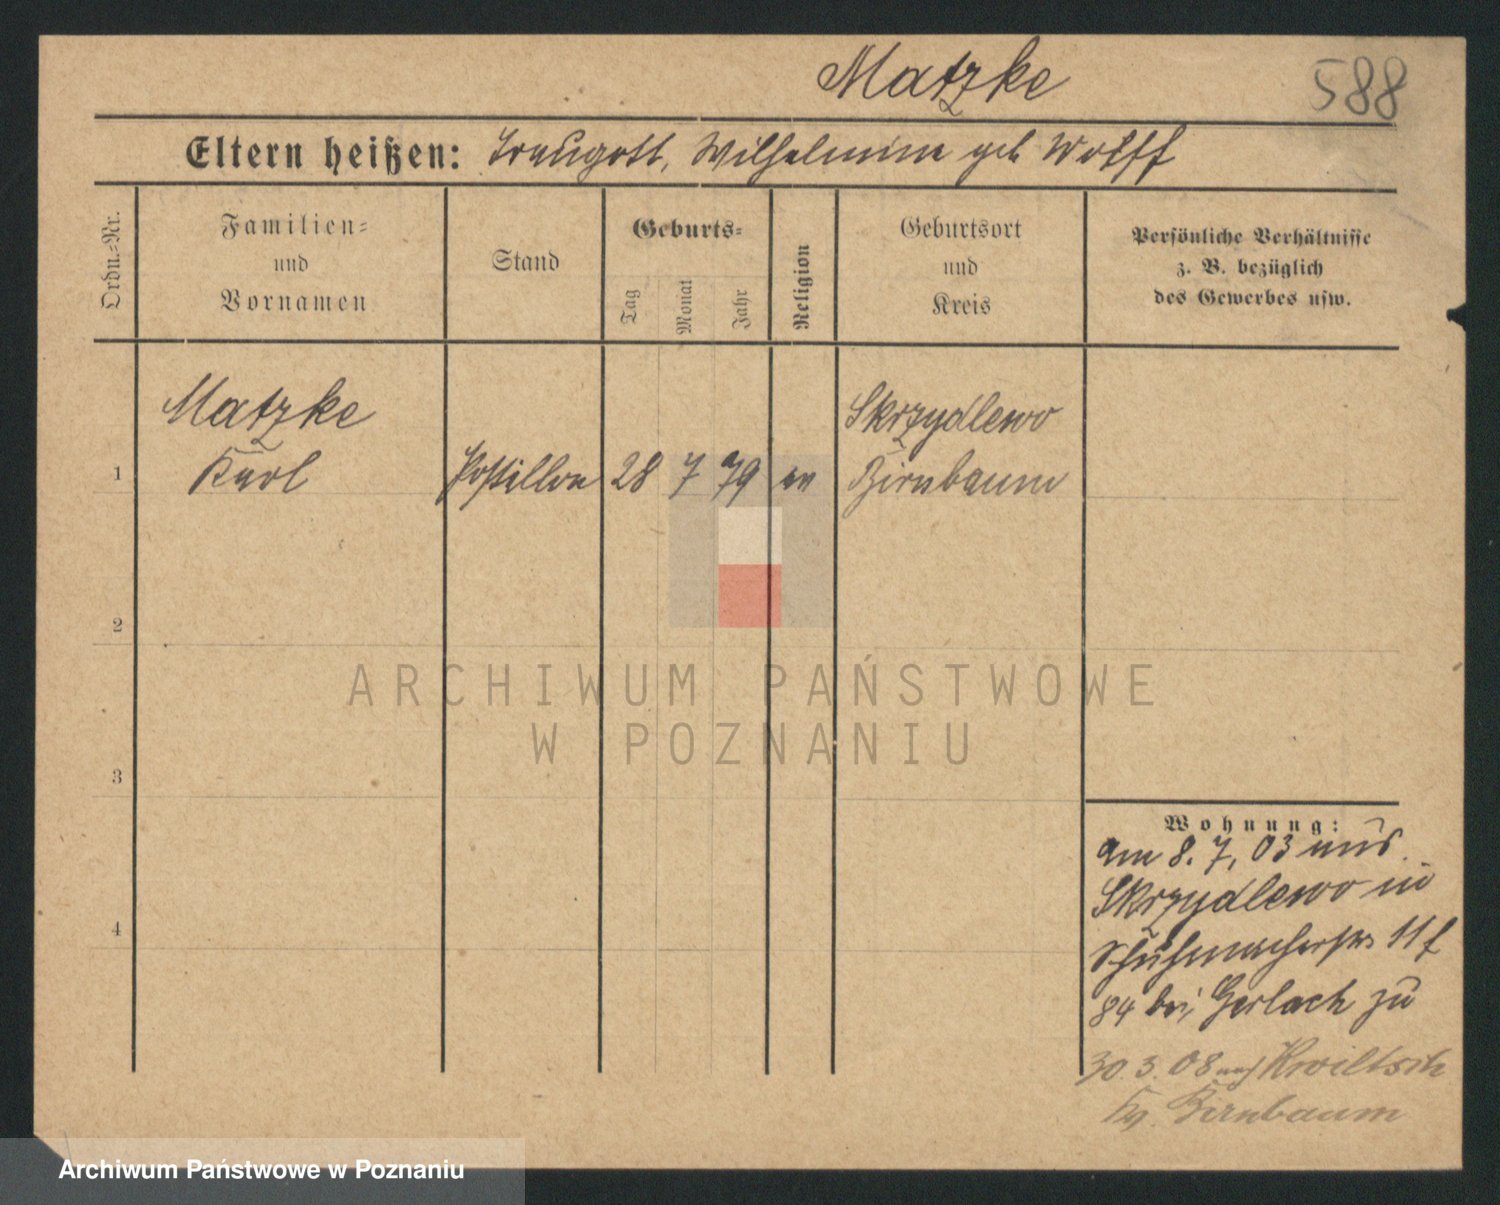 Matzke
588
Eltern heißen: Traugott, Wilhelmine geb Wolff
Ordn.-Nr.
Familien-
und
Vornamen
Stand
Geburts-
Tag
Monat
Jahr
Religion
Geburtsort
und
Kreis
Persönliche Verhältnisse
z. B. bezüglich
des Gewerbes usw.
Matzke
Skrzydlewo
1 Karl Postillon 28 7 79 ev Birnbaum
2
ARCHIWUM PAŃSTWOWE
W POZNANIU
3
Wohnung:
am 8. 7. 03 aus
Skrzydlewo in
4
Schuhmacherstr 11
84 bei Gerlach zu
30. 3. 08 nach Kwiltsch
Birnbaum
Archiwum Państwowe w Poznaniu